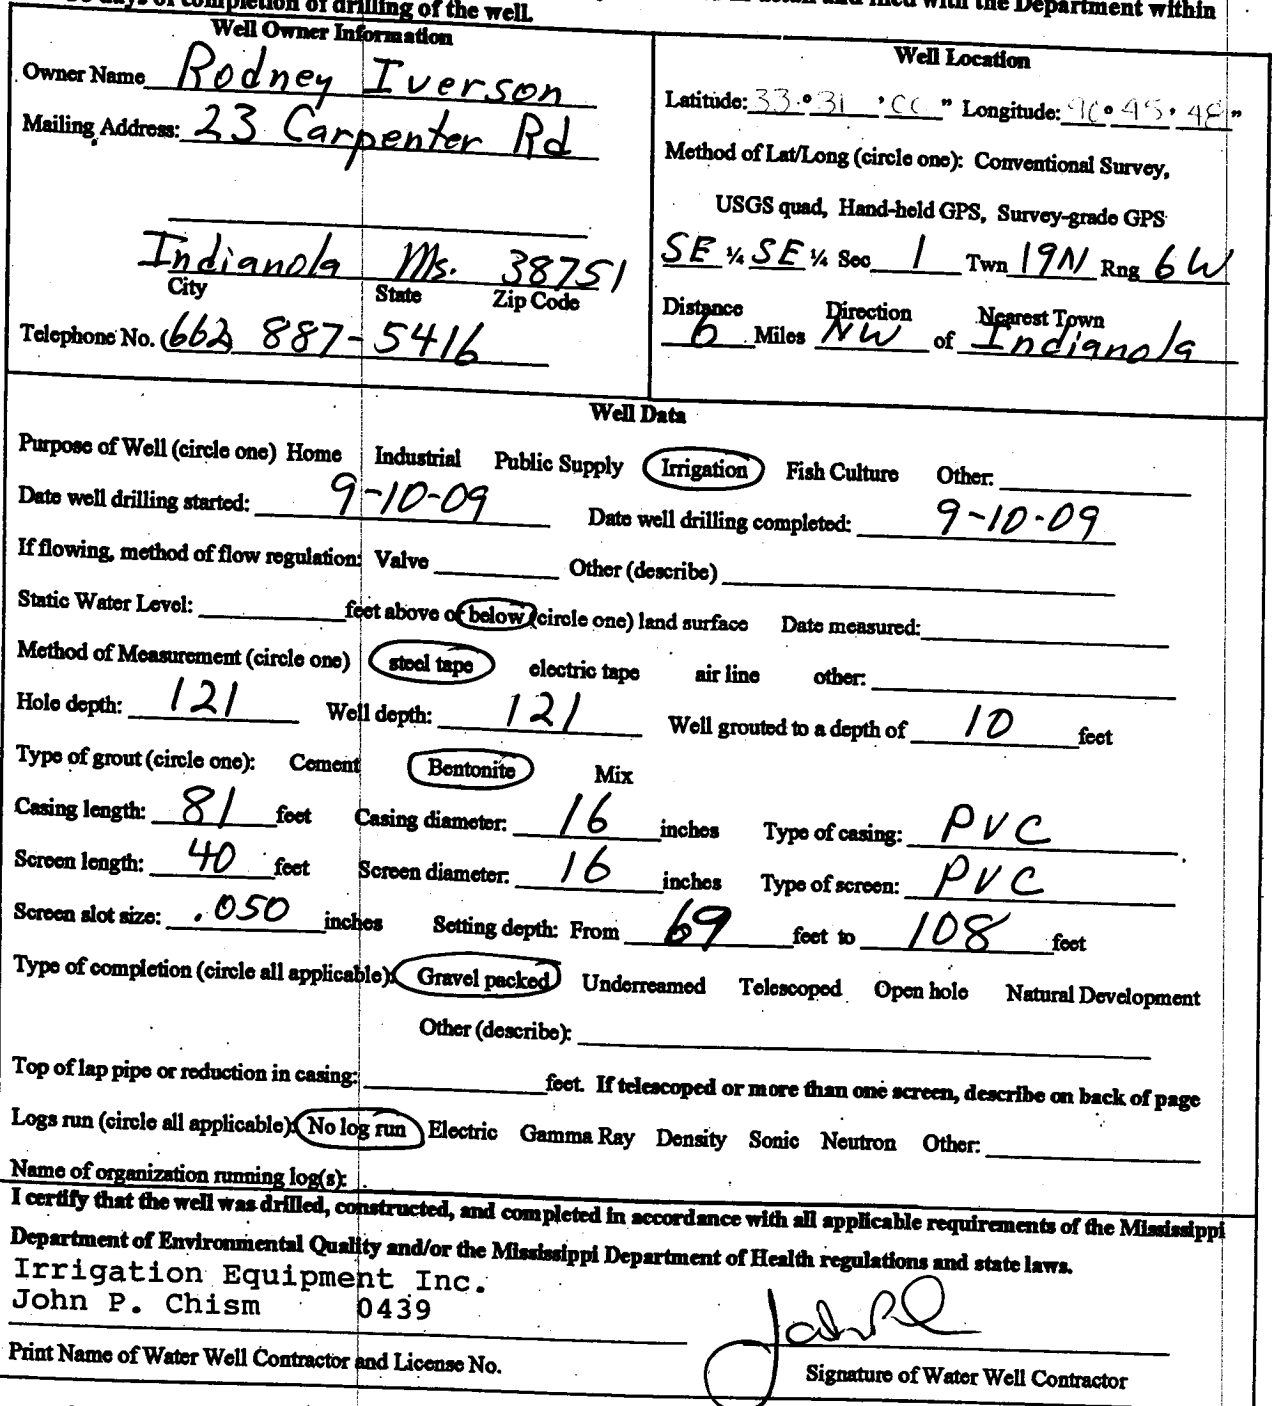 days of completion of drilling of the well.
with the Department within
Well Owner Information
Owner Name Rodney Iverson
Mailing Address: 23 Carpenter Rd
Indianola Ms. 38751
City State Zip Code
Telephone No. (662) 887-5416
Well Location
Latitude: 33° 31 ' " Longitude: ° 45 ' 48 "
Method of Lat/Long (circle one): Conventional Survey,
USGS quad, Hand-held GPS, Survey-grade GPS
SE ¼ SE ¼ Sec 1 Twn 19N Rng 6W
Distance Direction Nearest Town
6 Miles NW of Indianola
Well Data
Purpose of Well (circle one) Home Industrial Public Supply Irrigation Fish Culture Other:
Date well drilling started: 9-10-09 Date well drilling completed: 9-10-09
If flowing, method of flow regulation: Valve Other (describe)
Static Water Level: feet above or below (circle one) land surface Date measured:
Method of Measurement (circle one) steel tape electric tape air line other:
Hole depth: 121 Well depth: 121 Well grouted to a depth of 10 feet
Type of grout (circle one): Cement Bentonite Mix
Casing length: 81 feet Casing diameter: 16 inches Type of casing: PVC
Screen length: 40 feet Screen diameter: 16 inches Type of screen: PVC
Screen slot size: .050 inches Setting depth: From 69 feet to 108 feet
Type of completion (circle all applicable): Gravel packed Underreamed Telescoped Open hole Natural Development
Other (describe):
Top of lap pipe or reduction in casing: feet. If telescoped or more than one screen, describe on back of page
Logs run (circle all applicable): No log run Electric Gamma Ray Density Sonic Neutron Other:
Name of organization running log(s):
I certify that the well was drilled, constructed, and completed in accordance with all applicable requirements of the Mississippi
Department of Environmental Quality and/or the Mississippi Department of Health regulations and state laws.
Irrigation Equipment Inc.
John P. Chism 0439
Print Name of Water Well Contractor and License No.
Signature of Water Well Contractor